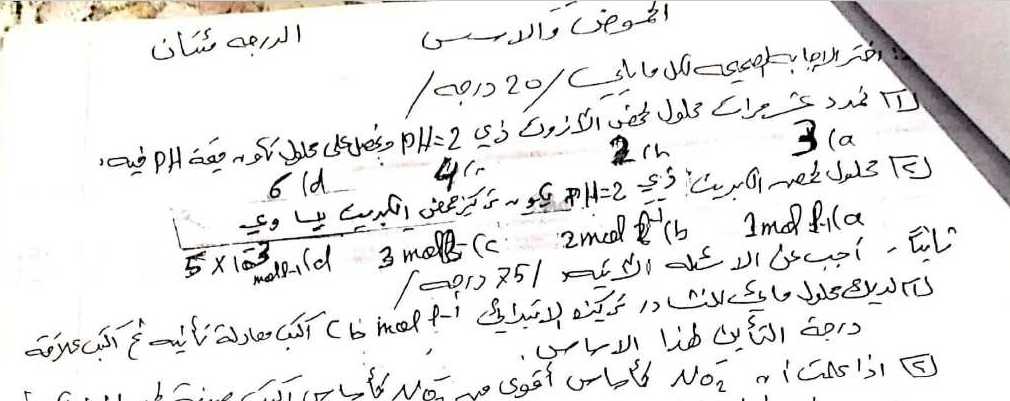 الحموض والاسس الدرجه مئتان
اختر الاجابه الصحيحه لكل ماياتي / 20 درجه /
1 نمدد عشر مرات محلول لحمض الآزوت ذي pH=2 ونحصل على محلول تكون قيمة pH فيه:
3 (a 2 (b 4 (c 6 (d
2 محلول لحمض الكبريت ذي pH=2 يكون تركيز حمض الكبريت يساوي
1 mol l-1 (a 2 mol l-1 (b 3 mol l-1 (c 5 × 10-3 mol l-1 (d
ثانياً - أجب عن الاسئله الآتيه / 75 درجه /
1 لديك محلول مائي للنشادر تركيزه الابتدائي Cb mol l-1 اكتب معادلة تأينه ثم اكتب علاقة
درجة التأين لهذا الاساس.
2 اذا علمت أن NO2- كأساس أقوى من NO3- كأساس اكتب